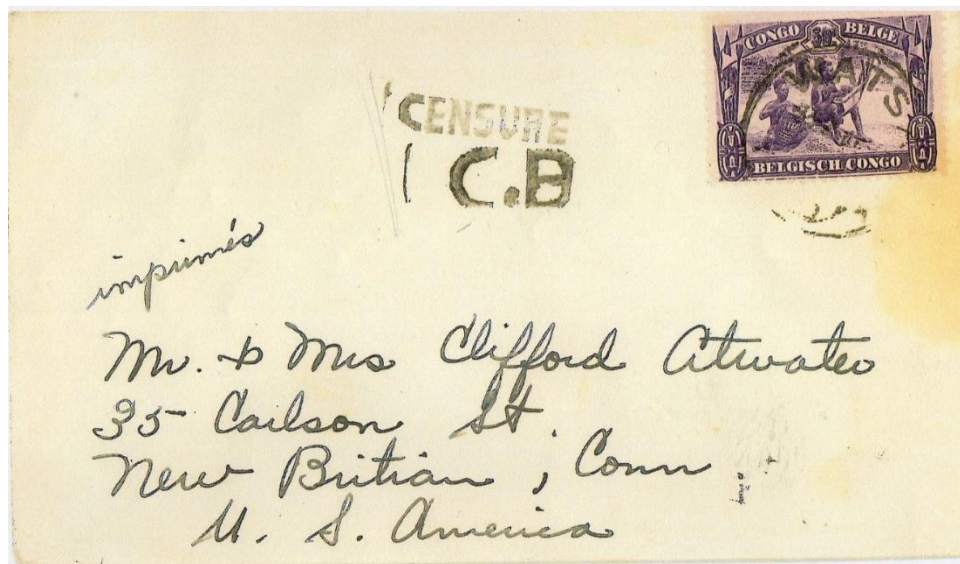 CONGO BELGE
WATS
BELGISCH CONGO
CENSURE
C.B
imprimés
Mr. & Mrs Clifford Atwater
35 Carlson St.
New Britian, Conn
U. S. America